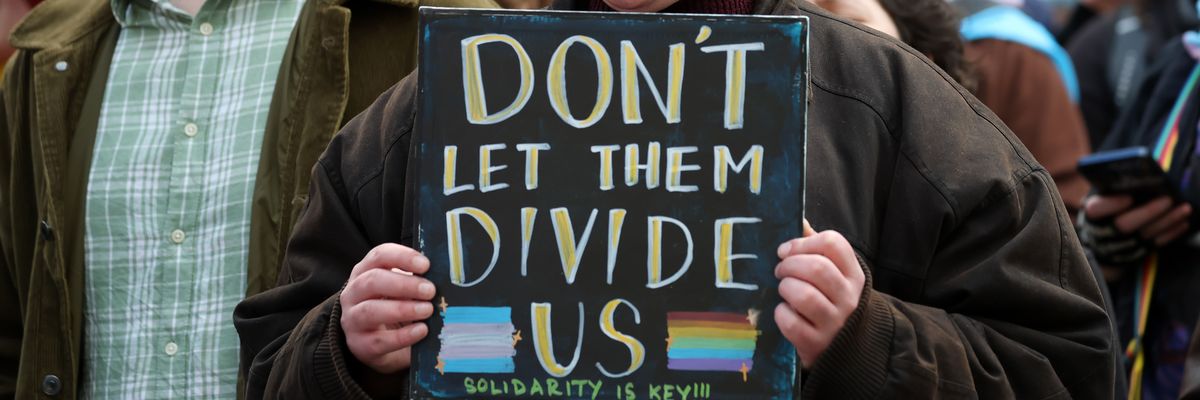 DON'T
LET THEM
DIVIDE
US
SOLIDARITY IS KEY!!!